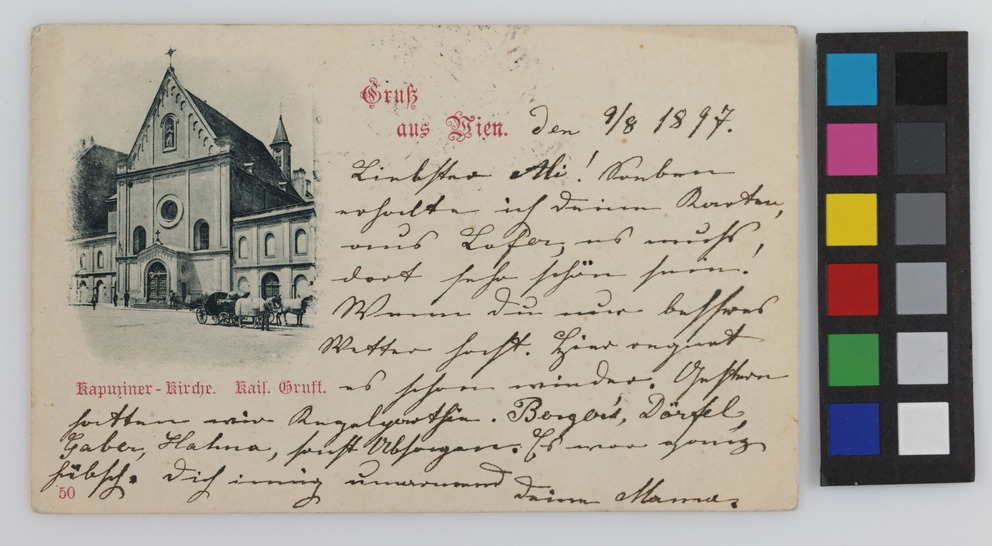 Gruß
aus Wien.
den 9/8 1897.
Liebster Ali! Soeben
erhalte ich deine Karten,
aus Lofer, es muß,
dort sehr schön sein!
Wenn Du nur besseres
Wetter hast. Hier regnet
es schon wieder. Gestern
hatten wir Kegelparthie. Dörfel,
Gaber, Hatma, sonst Absagen. Es war ganz
hübsch. Dich innig umarmend
deine Mama.
Kapuziner-Kirche. Kais. Gruft.
50